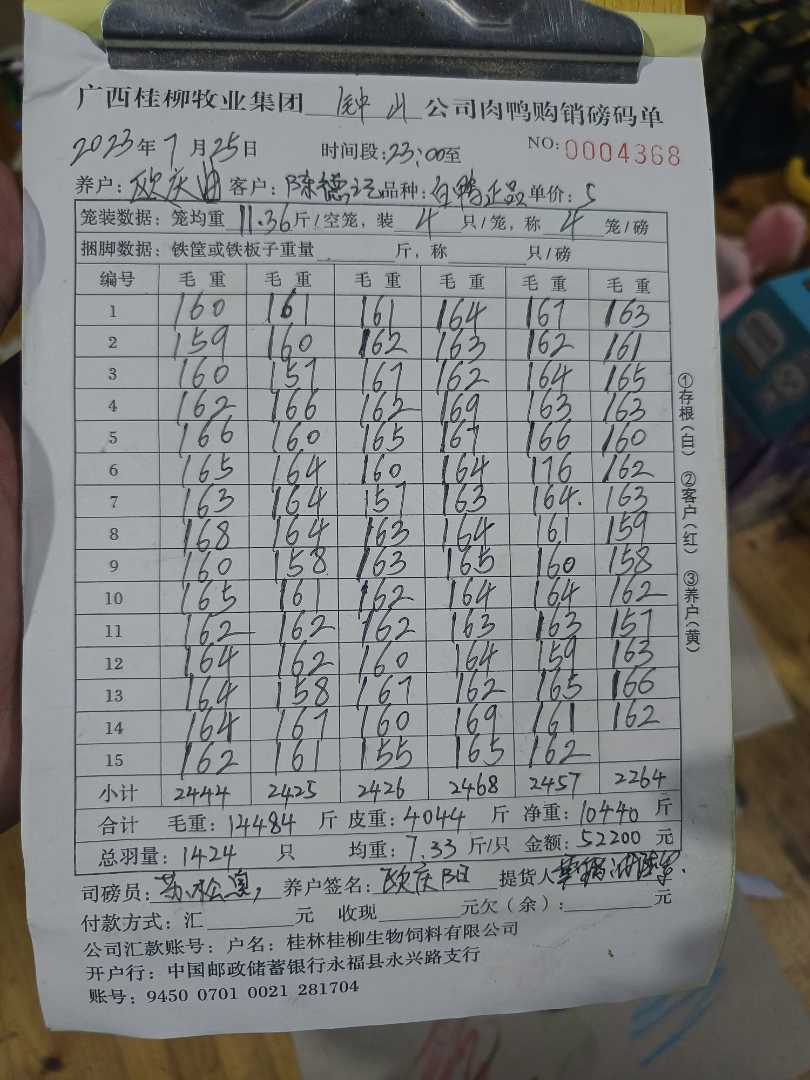 广西桂柳牧业集团 钟山 公司肉鸭购销磅码单
2023年7月25日 时间段:23:00至 NO:0004368
养户: 欧庆 客户: 陈德 品种: 白鸭正品 单价: 5
笼装数据: 笼均重 11.36 斤/空笼, 装 4 只/笼, 称 4 笼/磅
捆脚数据: 铁筐或铁板子重量 斤, 称 只/磅
编号 毛重 毛重 毛重 毛重 毛重 毛重
1 160 161 161 164 167 163
2 159 160 162 163 162 161
3 160 157 167 162 164 165
4 162 166 162 169 163 163
5 166 160 165 167 166 160
6 165 164 160 164 176 162
7 163 164 157 163 164. 163
8 168 164 163 164 161 159
9 160 158 163 165 160 158
10 165 161 162 164 164 162
11 162 162 162 163 163 157
12 164 162 160 164 159 163
13 164 158 167 162 165 166
14 164 167 160 169 161 162
15 162 161 155 165 162
小计 2444 2425 2426 2468 2457 2264
合计 毛重: 14484 斤 皮重: 4044 斤 净重: 10440 斤
总羽量: 1424 只 均重: 7.33 斤/只 金额: 52200 元
司磅员: 苏松 养户签名: 欧庆阳 提货人
付款方式: 汇 元 收现 元欠(余): 元
公司汇款账号: 户名: 桂林桂柳生物饲料有限公司
开户行: 中国邮政储蓄银行永福县永兴路支行
账号: 9450 0701 0021 281704
①存根(白) ②客户(红) ③养户(黄)